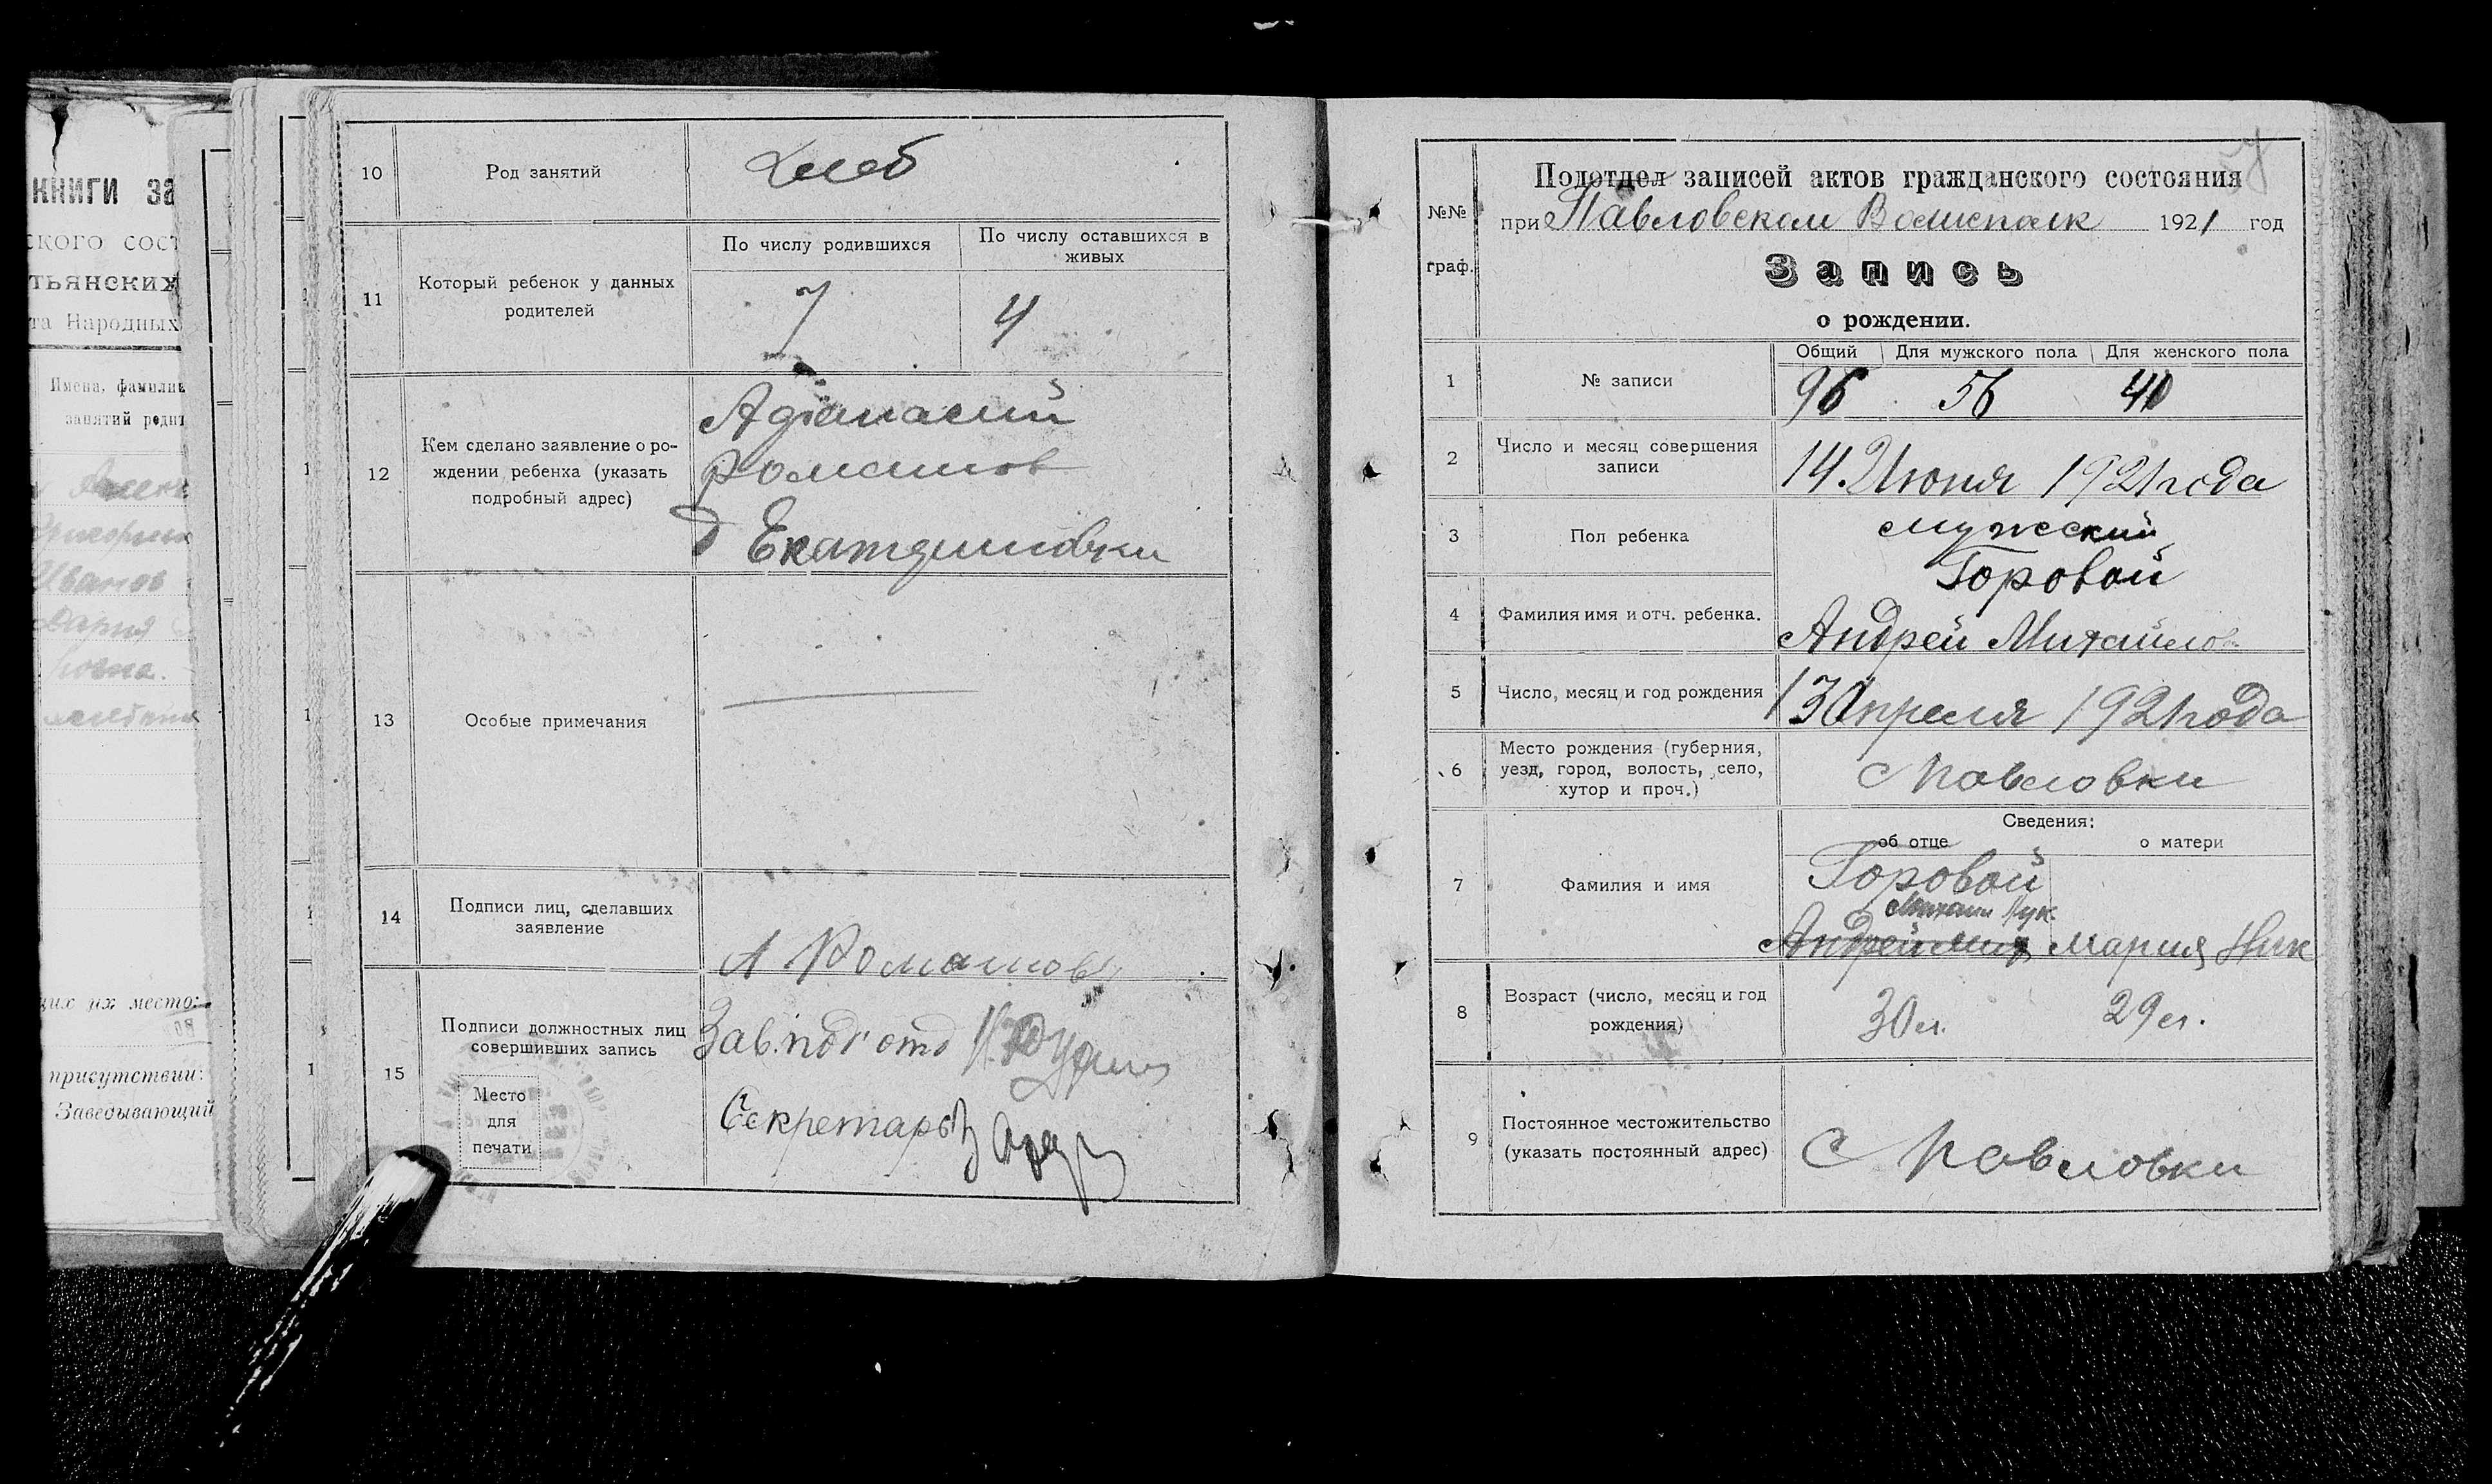 КНИГИ ЗА
ского сост
тьянских
та Народных
Имена, фамилии
занятий родит
Иванов
Дария
щих их место:
присутствии:
Заведывающий
10 Род занятий Хлеб
11 Который ребенок у данных родителей
По числу родившихся По числу оставшихся в живых
7 4
12 Кем сделано заявление о ро-
ждении ребенка (указать
подробный адрес)
Афанасий
Романов
д Екатериновки
13 Особые примечания
14 Подписи лиц, сделавших
заявление
А Романов
15 Подписи должностных лиц
совершивших запись
Зав. под'отд
Место
для
печати
Секретарь
№№
граф.
Подотдел записей актов гражданского состояния
при Павловском Волисполк 1921 год
Запись
о рождении.
Общий Для мужского пола Для женского пола
1 № записи 96 56 40
2 Число и месяц совершения
записи
14. Июня 1921 года
3 Пол ребенка мужский
4 Фамилия имя и отч. ребенка.
Горовой
Андрей Михайлов
5 Число, месяц и год рождения 13 Апреля 1921 года
6 Место рождения (губерния,
уезд, город, волость, село,
хутор и проч.)
с Павловки
Сведения:
об отце о матери
7 Фамилия и имя
Горовой
Михаил Лук
Андрей Мих Мария Ник
8 Возраст (число, месяц и год
рождения)
30 л. 29 л.
9 Постоянное местожительство
(указать постоянный адрес)
с Павловки